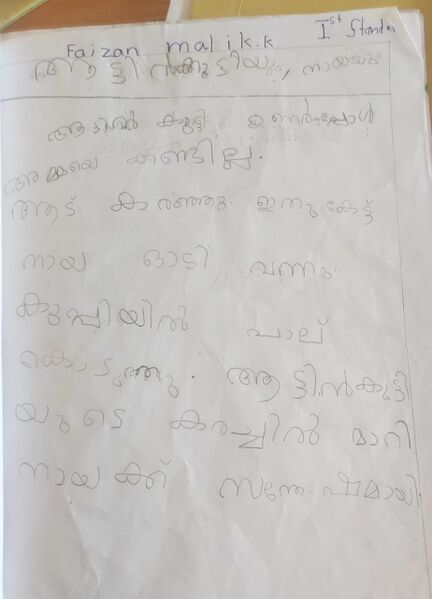 Faizan malik.k Iˢᵗ Standar
ആട്ടിൻകുട്ടിയും, നായയും
ആട്ടിൻ കുട്ടി ഉണർന്നപ്പോൾ
അമ്മയെ കണ്ടില്ല.
ആട് കരഞ്ഞു ഇതു കേട്ട്
നായ ഓടി വന്നു
കുപ്പിയിൽ പാല്
കൊടുത്തു. ആട്ടിൻകുട്ടി
യുടെ കരച്ചിൽ മാറി
നായക്ക് സന്തോഷമായി